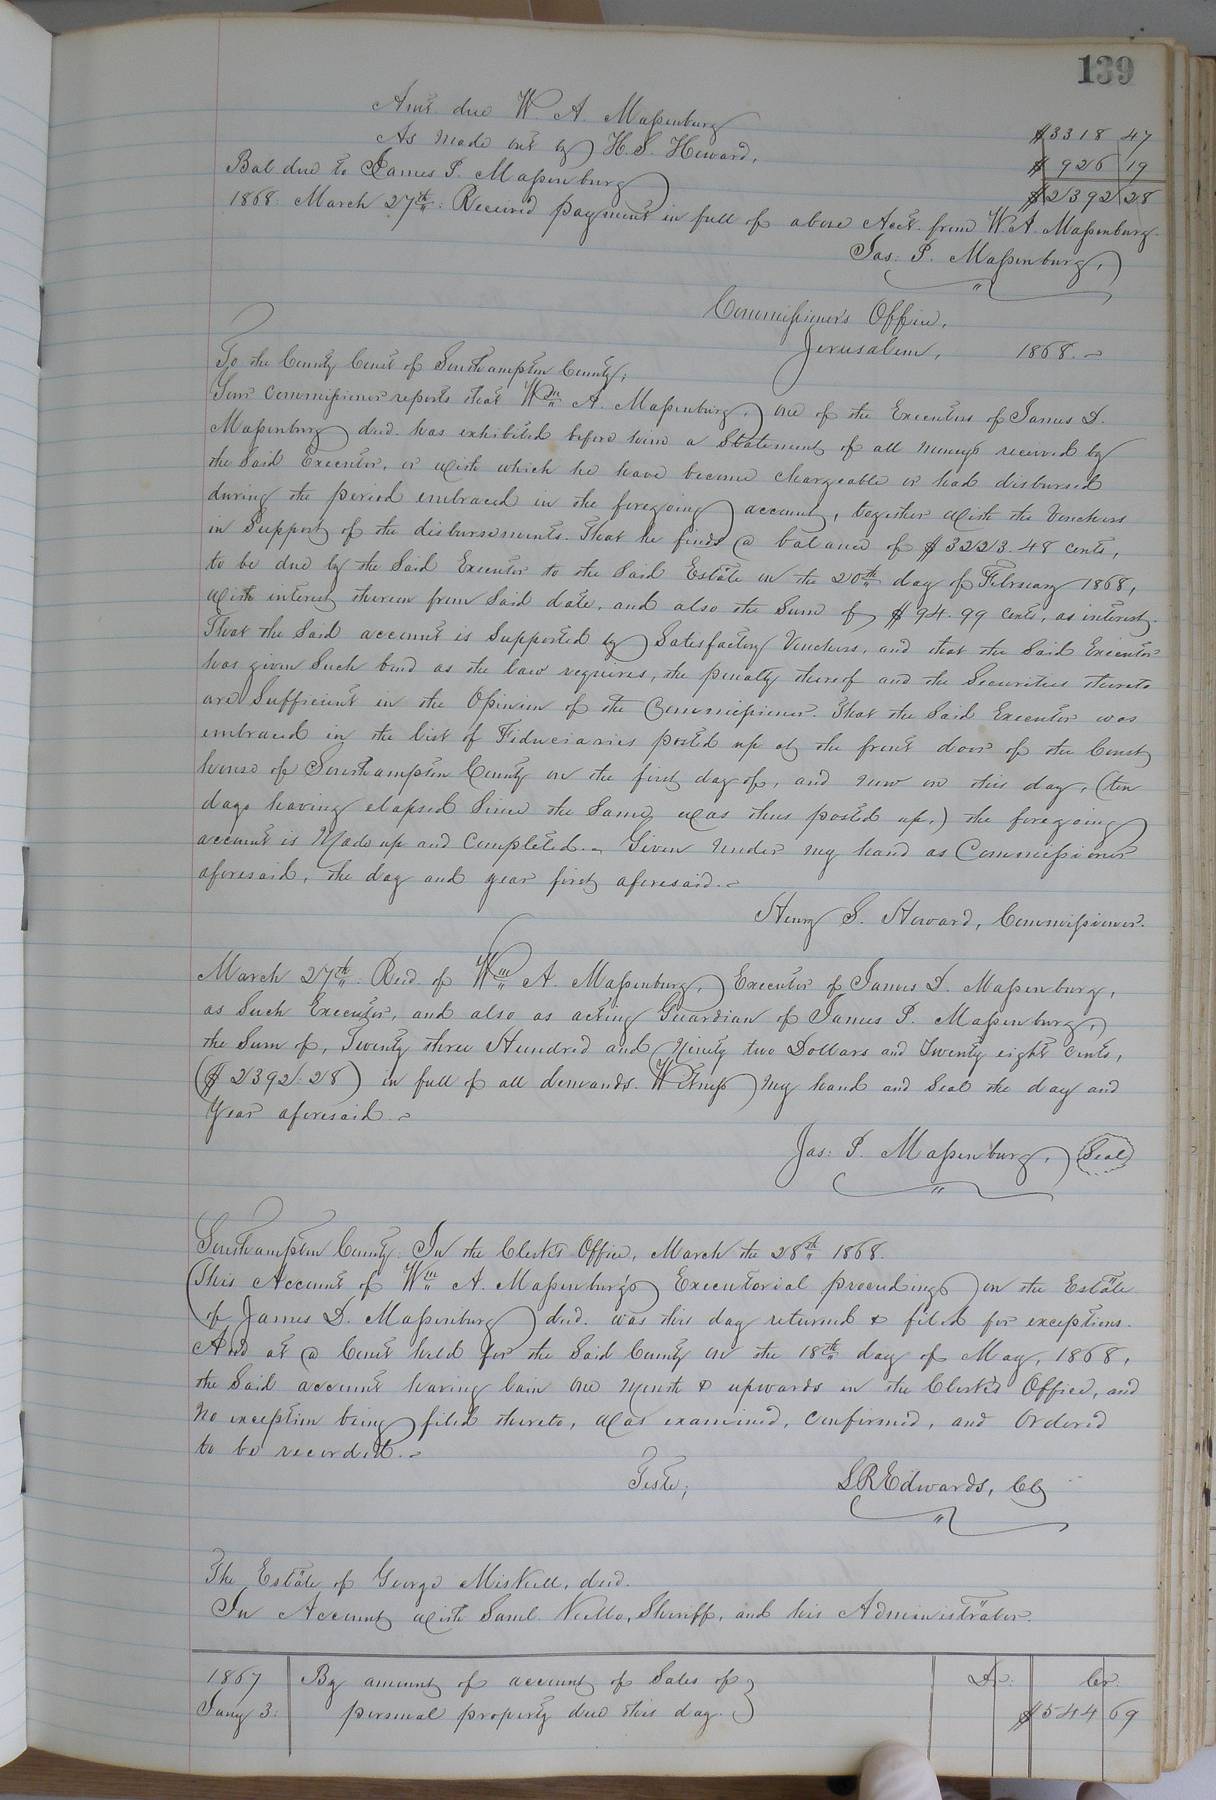 139
Amt. due W. A. Massenburg
As Made out by H. S. Howard, $3318 47
Bal due to James P. Massenburg $ 926 19
$2392 28
1868: March 27th: Received payment in full of above Acct. from W. A. Massenburg.
Jas: P. Massenburg,
Commissioner's Office,
Jerusalem, 1868.
To the County Court of Southampton County;
Your Commissioner reports that Wm A. Massenburg, one of the Executors of James D.
Massenburg decd. has exhibited before him a Statement of all moneys received by
the Said Executor, or with which he have become chargeable or had disbursed
during the period embraced in the foregoing account, together with the Vouchers
in Support of the disbursements. That he finds a balance of $3223.48 cents,
to be due by the Said Executor to the Said Estate on the 20th day of February 1868,
with interest thereon from Said date, and also the Sum of $94.99 cents, as interest.
That the Said account is Supported by Satisfactory Vouchers, and that the Said Executor
has given Such bond as the law requires, the penalty thereof and the Securities thereto
are Sufficient in the Opinion of the Commissioner. That the Said Executor was
embraced in the list of Fiduciaries posted up at the front door of the Court
house of Southampton County on the first day of, and now on this day, (ten
days having elapsed Since the Same was thus posted up,) the foregoing
account is Made up and Completed. Given under my hand as Commissioner
aforesaid, the day and year first aforesaid.
Henry S. Howard, Commissioner.
March 27th. Recd. of Wm A. Massenburg, Executor of James D. Massenburg,
as Such Executor, and also as acting Guardian of James P. Massenburg,
the Sum of, Twenty three Hundred and Ninety two Dollars and Twenty eight Cents,
($2392.28) in full of all demands. Witness my hand and Seal the day and
Year aforesaid.
Jas: P. Massenburg, Seal
Southampton County: In the Clerk's Office, March the 28th 1868.
This Account of Wm A. Massenburg's Executorial proceedings on the Estate
of James D. Massenburg decd. was this day returned & filed for exceptions.
And at a Court held for the Said County on the 18th day of May, 1868,
the Said account having lain one month & upwards in the Clerk's Office, and
no exception being filed thereto, was examined, confirmed, and Ordered
to be recorded.
Teste; L R Edwards, Clk
The Estate of George Miskell, decd.
In Account with Saml. Kello, Sheriff, and his Administrator.
1867 By amount of account of Sales of Dr. Cr.
Jany 3: personal property due this day. $544 69